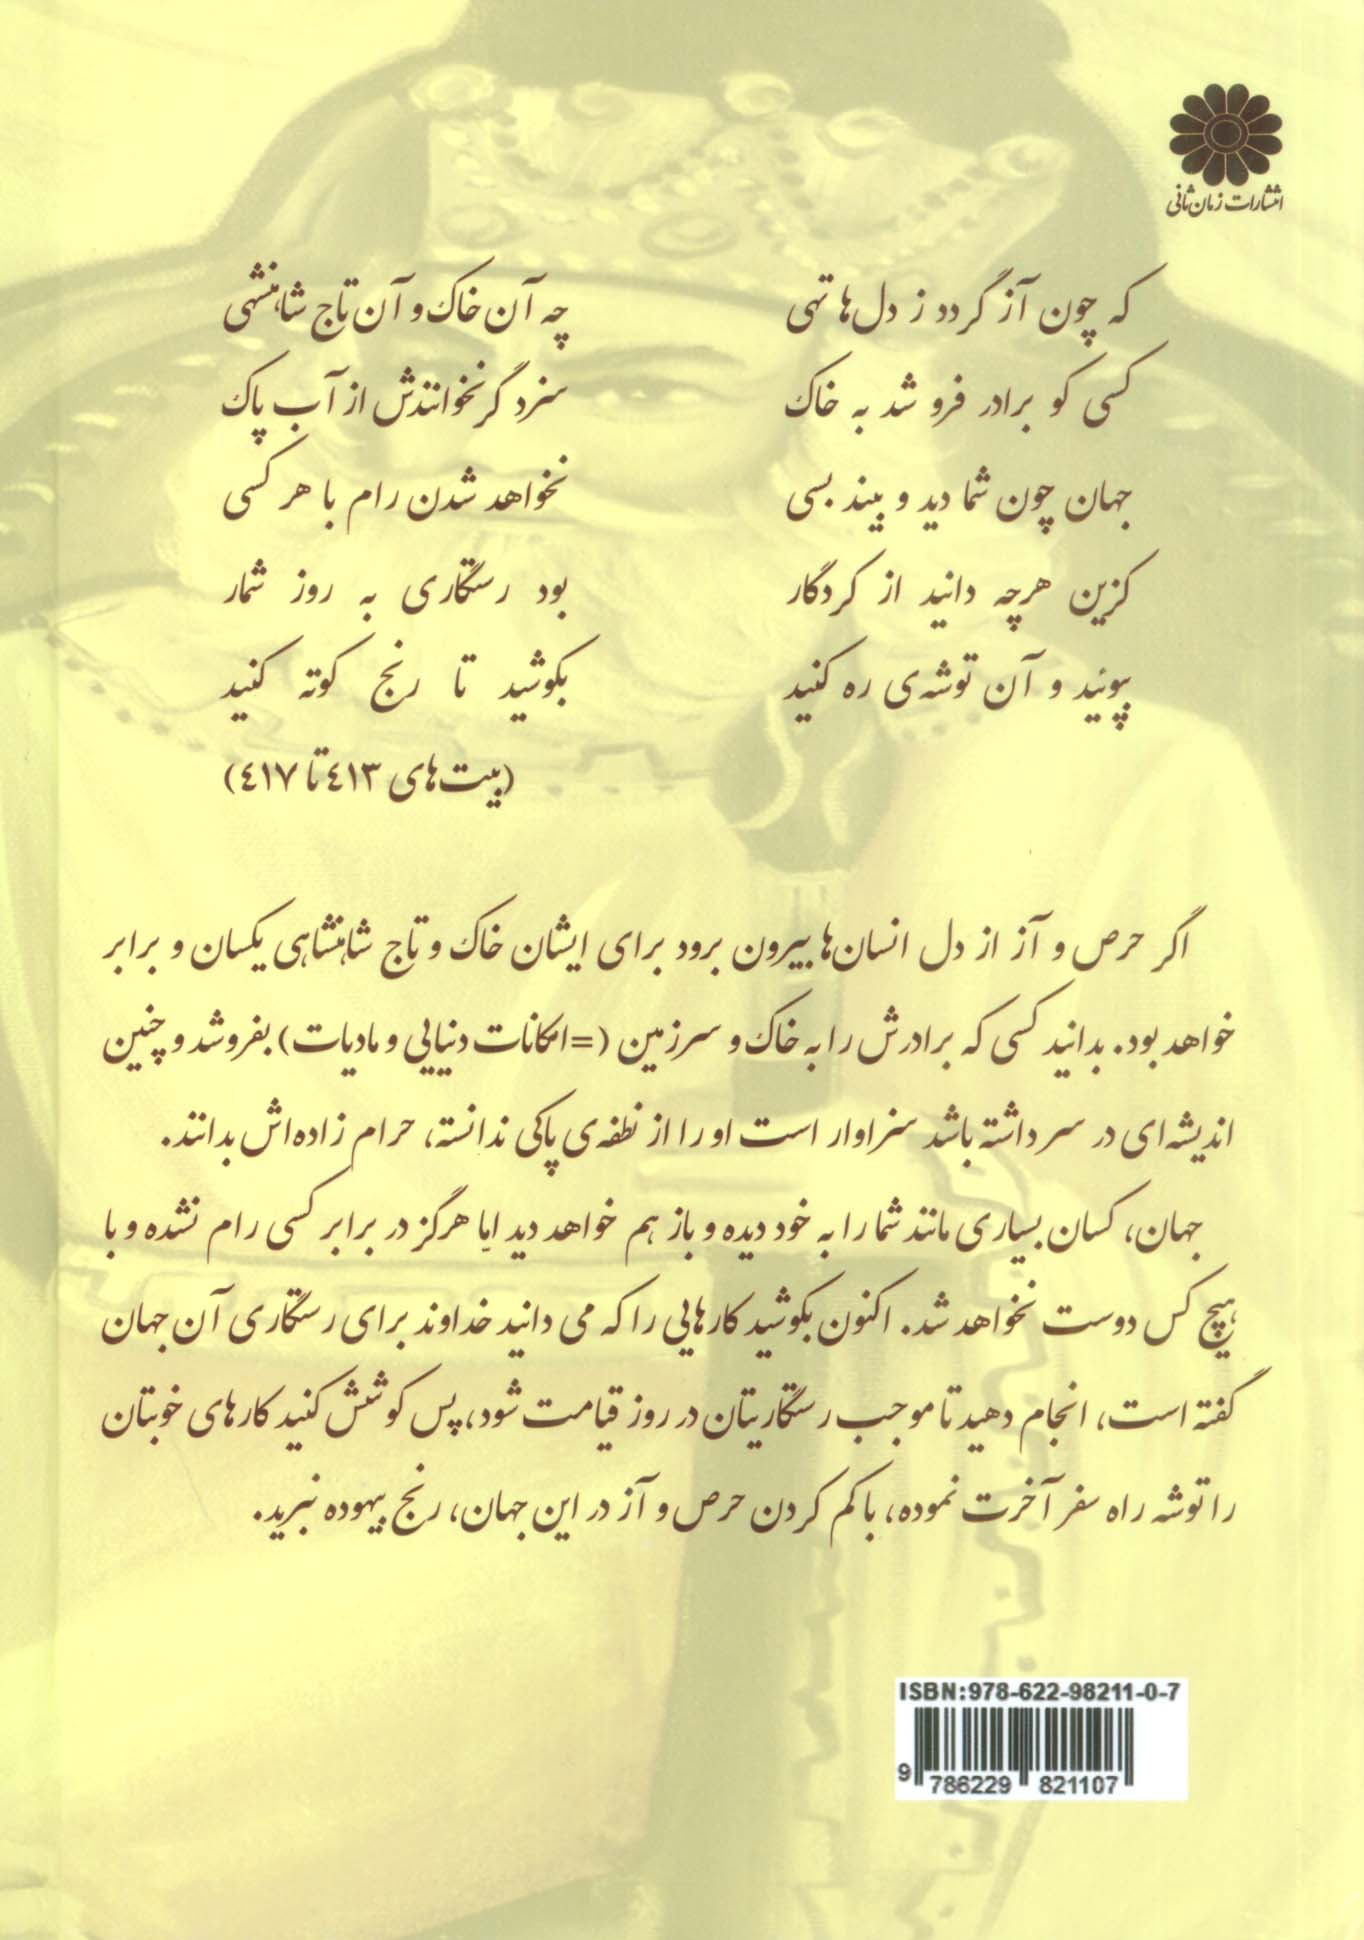 انتشارات زمان ثانی
که چون آز گردد ز دل‌ها تهی چه آن خاک و آن تاج شاهنشهی
کسی کو برادر فروشد به خاک سزد گر نخوانندش از آب پاک
جهان چون شما دید و بیند بسی نخواهد شدن رام با هر کسی
کزین هرچه دانید از کردگار بود رستگاری به روز شمار
بپوئید و آن توشه‌ی ره کنید بکوشید تا رنج کوته کنید
(بیت‌های ٤١٣ تا ٤١٧)
اگر حرص و آز از دل انسان‌ها بیرون برود برای ایشان خاک و تاج شاهنشاهی یکسان و برابر
خواهد بود. بدانید کسی که برادرش را به خاک و سرزمین (=امکانات دنیایی و مادیات) بفروشد و چنین
اندیشه‌ای در سر داشته باشد سزاوار است او را از نطفه‌ی پاکی ندانسته، حرام زاده‌اش بدانند.
جهان، کسان بسیاری مانند شما را به خود دیده و باز هم خواهد دید اما هرگز در برابر کسی رام نشده و با
هیچ کس دوست نخواهد شد. اکنون بکوشید کارهایی را که می دانید خداوند برای رستگاری آن جهان
گفته است، انجام دهید تا موجب رستگاریتان در روز قیامت شود، پس کوشش کنید کارهای خوبتان
را توشه راه سفر آخرت نموده، با کم کردن حرص و آز در این جهان، رنج بیهوده نبرید.
ISBN:978-622-98211-0-7
9 786229 821107